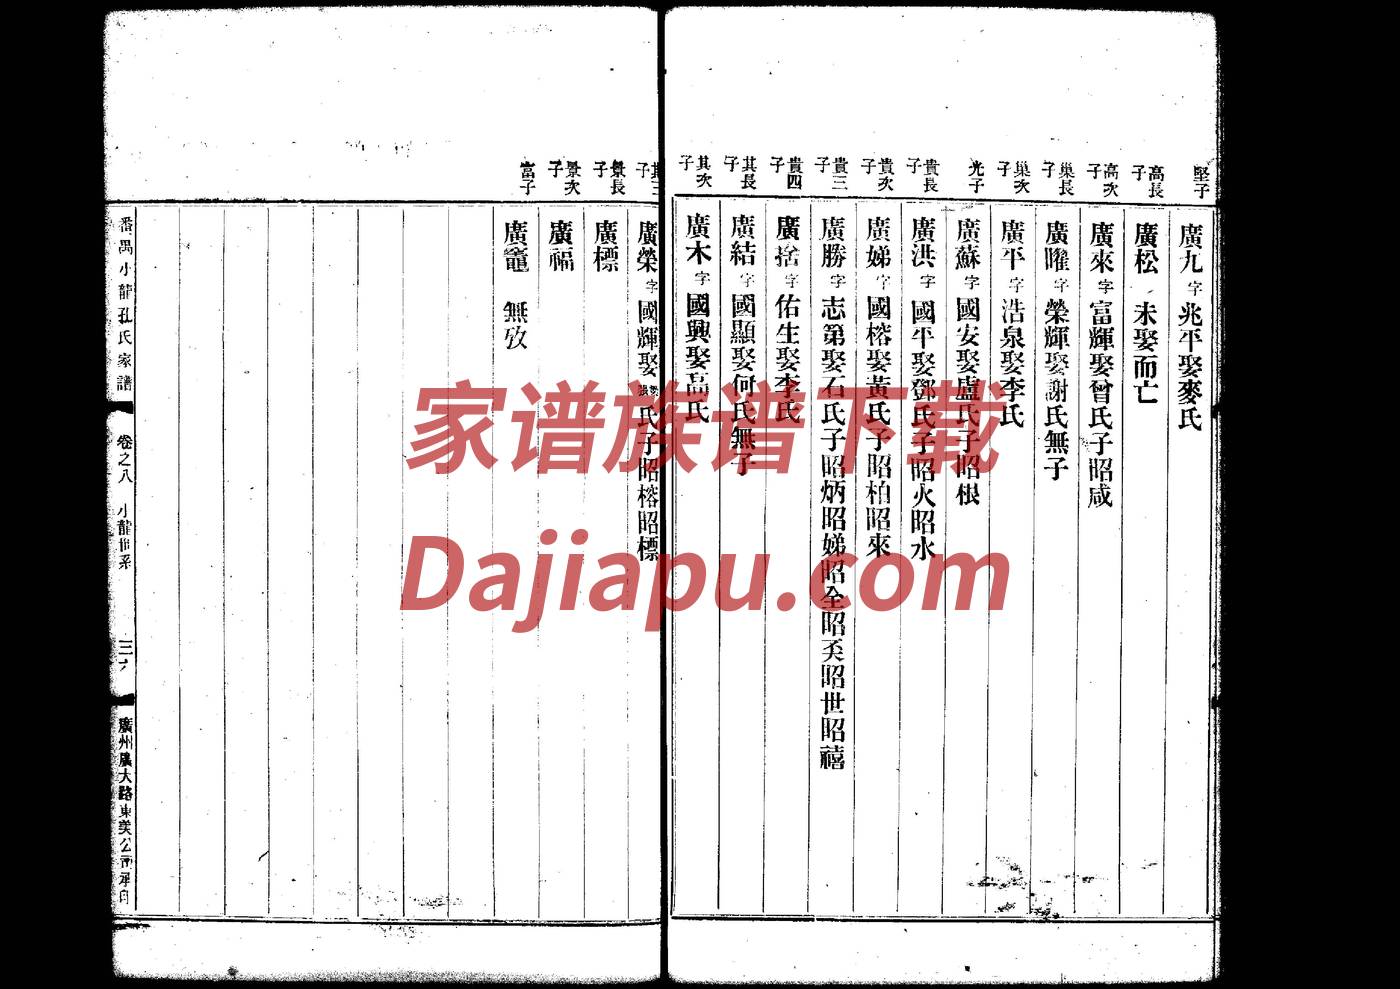 堅子
廣九字兆平娶麥氏
高長子
廣松 未娶而亡
高次子
廣來字富輝娶曾氏子昭咸
巢長子
廣曜字榮輝娶謝氏無子
巢次子
廣平字浩泉娶李氏
光子
廣蘇字國安娶盧氏子昭根
貴長子
廣洪字國平娶鄧氏子昭火昭水
貴次子
廣娣字國榕娶黃氏子昭柏昭來
貴三子
廣勝字志第娶石氏子昭炳昭娣昭全昭奀昭世昭禧
貴四子
廣捨字佑生娶李氏
其長子
廣結字國顯娶何氏無子
其次子
廣木字國興娶高氏
其三子
廣榮字國輝娶 張氏子昭榕昭標
景長子
廣標
景次子
廣福
富子
廣竈 無攷
番禺小龍孔氏家譜
卷之八 小龍世系
廣州廣大路東美公司承印
家谱族谱下载
Dajiapu.com